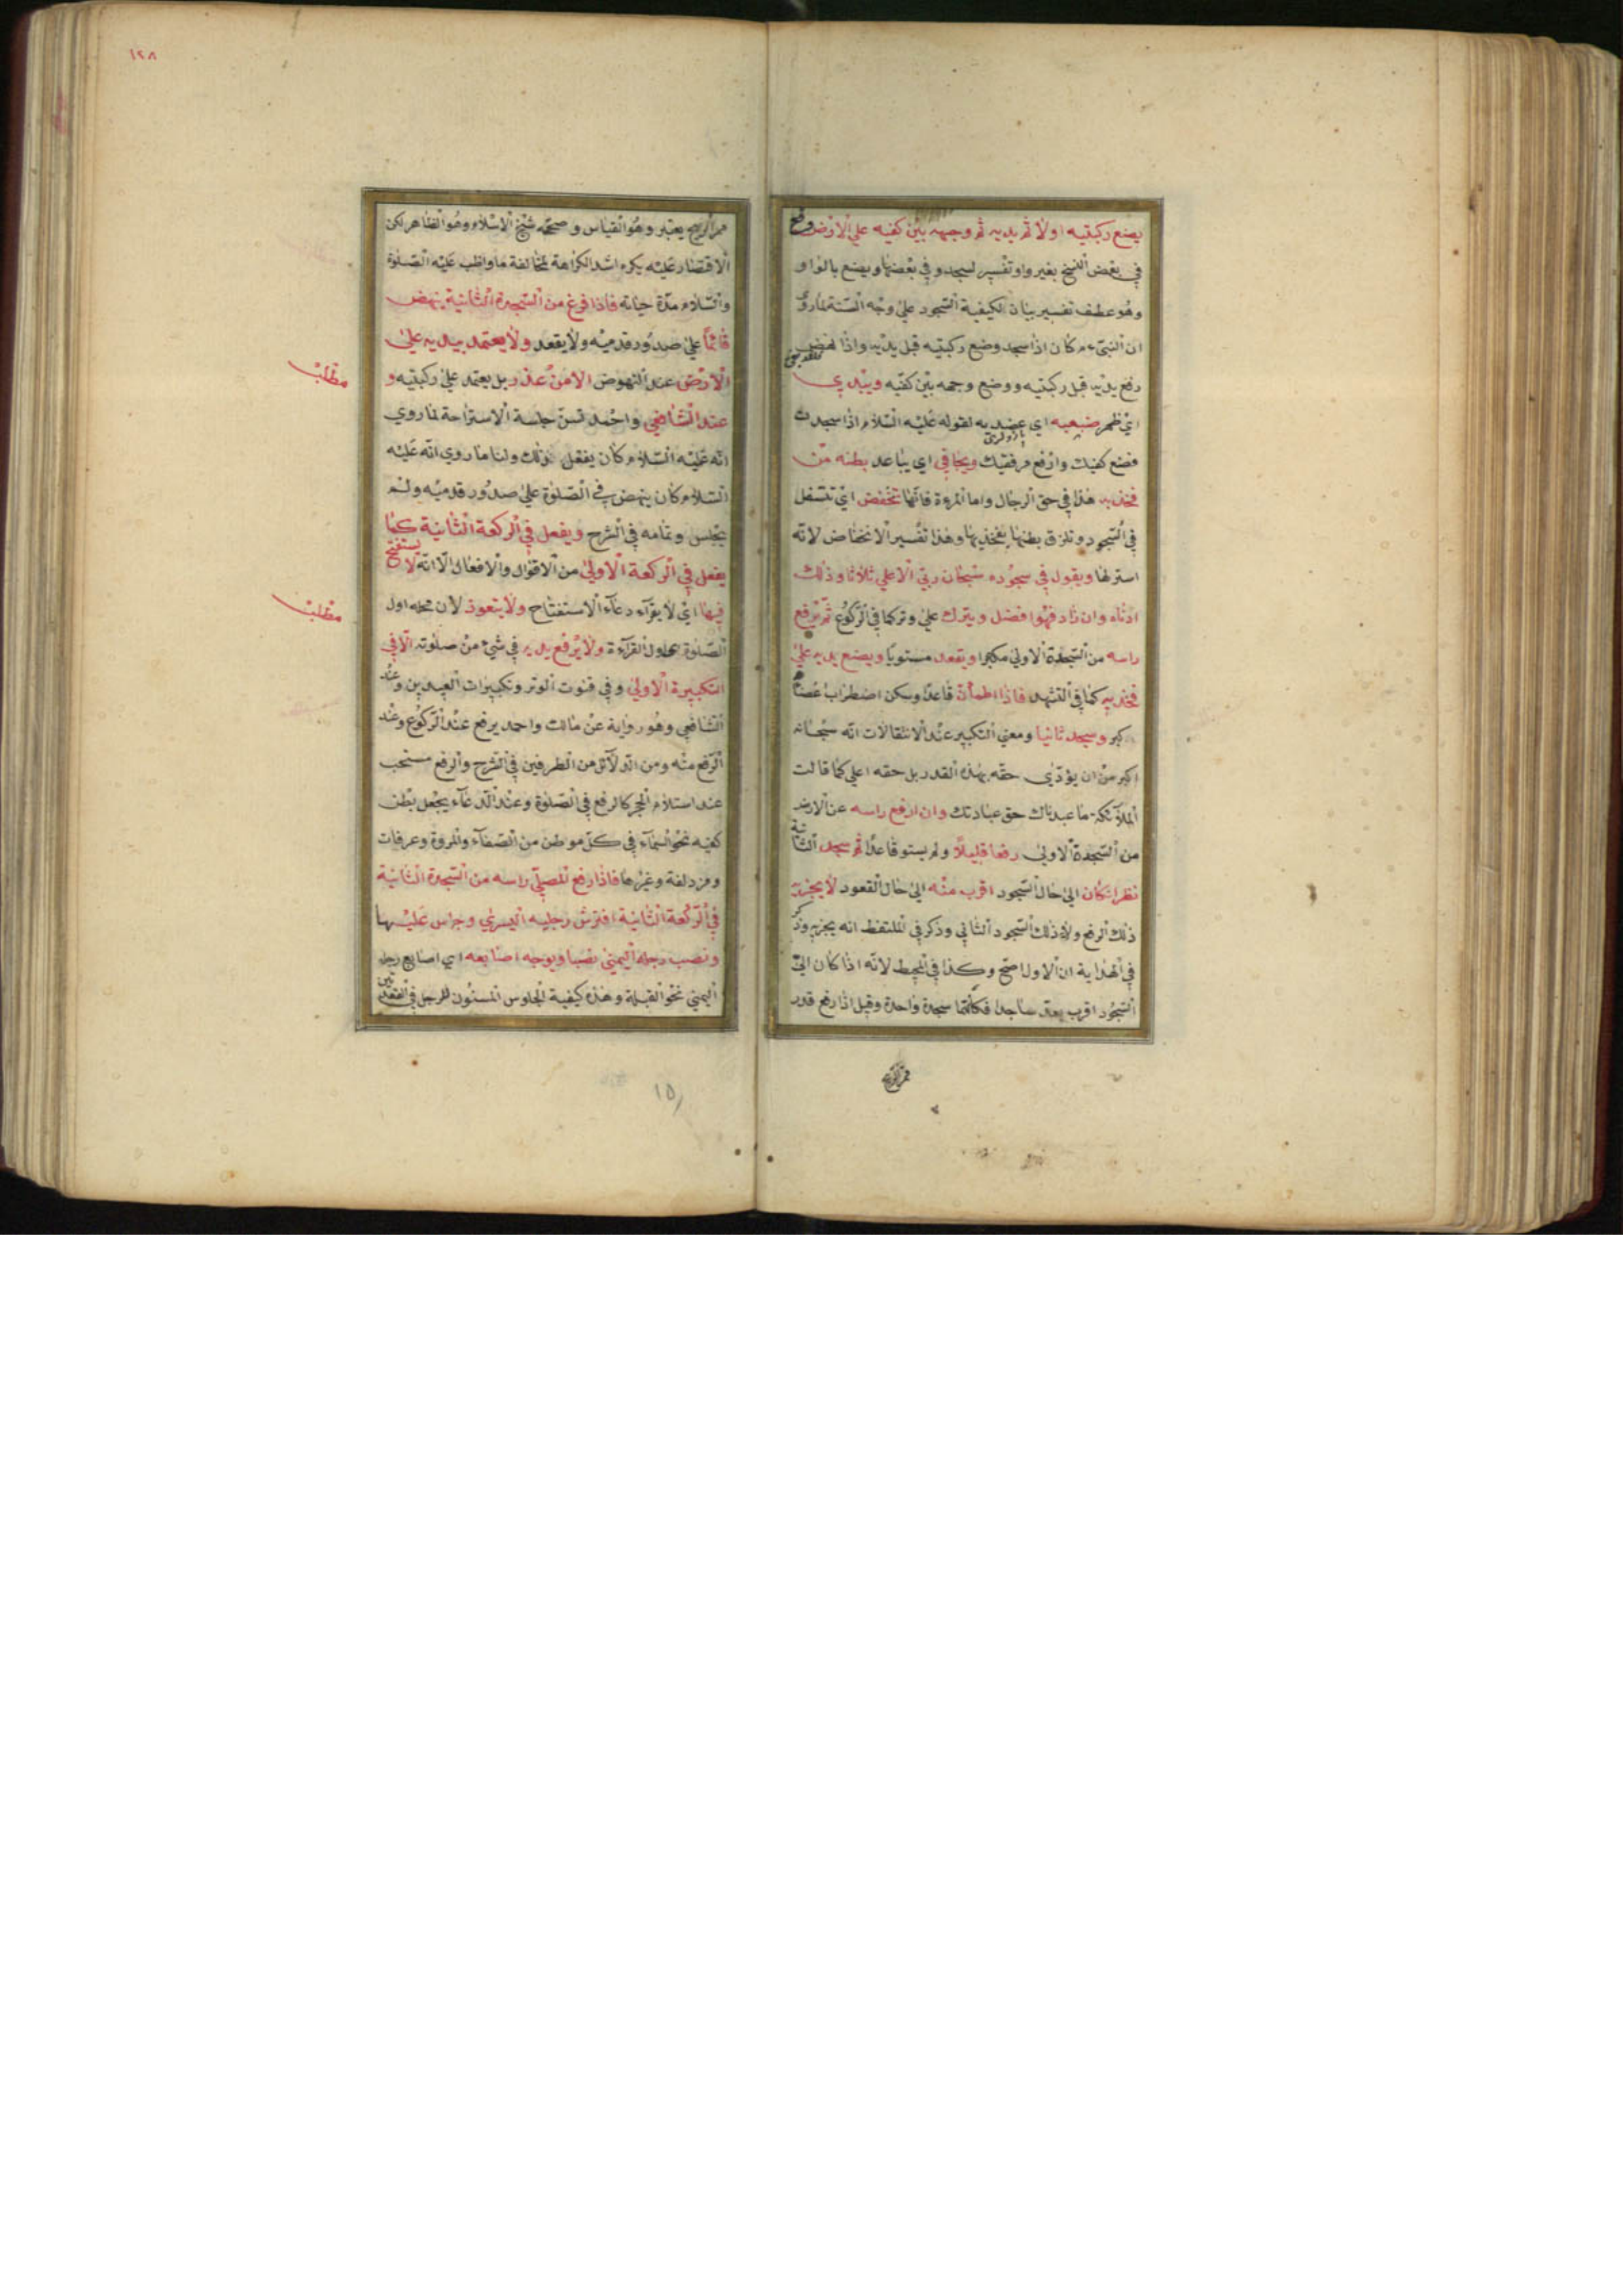 يضع ركبتيه اولا ثم يديه ثم وجهه بين كفيه علي الارض وقع
في بعض النسخ بغير واو تفسير لسجد وفي بعضها ويضع بالواو
وهو عطف تفسير بيان لكيفية السجود علي وجه السنة لما روي
ان النبي ءم كان اذا سجد وضع ركبتيه قبل يديه واذا نهض
رفع يديه قبل ركبتيه ووضع وجهه بين كفيه ويبدي
اي ظهر ضبعيه اي عضديه لقوله عليه السلام اذا سجدت
فضع كفيك وارفع مرفقيك ويجافي اي يباعد بطنه من
فخذيه هذا في حق الرجال واما المرءة فانها تخفض اي تتسفل
في السجود وتلزق بطنها بفخذيها وهذا تفسير الانخفاض لانه
استر لها ويقول في سجوده سبحان ربي الاعلي ثلاثا وذلك
ادناه وان زاد فهوا فضل ويترك علي وتر كما في الركوع ثم يرفع
راسه من السجدة الاولي مكبرا ويقعد مستويا ويضع يديه علي
فخذيه كما في التشهد فاذا اطمأن قاعدا وسكن اضطراب اعضائه
كبر وسجد ثانيا ومعني التكبير عند الانتقالات انه سبحانه
اكبر من ان يؤدي حقه بهذه القدر بل حقه اعلي كما قالت
الملآئكة ما عبدناك حق عبادتك وان ارفع راسه عن الارض
من السجدة الاولي رفعا قليلا ولم يستو قاعدا ثم سجد الثانية
نظر ان كان الي حال السجود اقرب منه الي حال القعود لا يجزيه
ذلك الرفع ولا ذلك السجود الثاني وذكر في الملتقط انه يجزيه وذكر
في الهداية ان الاول اصح وكذا في المحيط لانه اذا كان الي
السجود اقرب يعد ساجدا فكأنهما سجدة واحدة وقيل اذا رفع قدر
ممر الريح
ممر الريح يعتبر وهو القياس و صححه شيخ الاسلام وهو الظاهر لكن
الاقتصار عليه يكره اشد الكراهة لمخالفة ما واظب عليه الصلوة
والسلام مدة حياته فاذا فرغ من السجدة الثانية ينهض
قائما علي صدور قدميه ولا يقعد ولا يعتمد بيديه علي
الارض عند النهوض الا من عذر بل يعتمد علي ركبتيه و
عند الشافعي واحمد تسن جلسة الاستراحة لما روي
انه عليه السلام كان يفعل ذلك ولنا ما روي انه عليه
السلام كان ينهض في الصلوة علي صدور قدميه ولم
يجلس وتمامه في الشرح ويفعل في الركعة الثانية كما
يفعل في الركعة الاولي من الاقوال والافعال الا انه لا يستفتح
فيها اي لا يقرآء دعآء الاستفتاح ولا يتعوذ لان محله اول
الصلوة اول القرآءة ولا يرفع يديه في شئ من صلوته الا في
التكبيرة الاولي وفي قنوت الوتر وتكبيرات العيدين وعند
الشافعي وهو رواية عن مالك واحمد يرفع عند الركوع وعند
الرفع منه ومن الدلآئل من الطرفين في الشرح والرفع مستحب
عند استلام الحجر كالرفع في الصلوة وعند الدعآء يجعل بطن
كفيه نحو السمآء في كل موطن من الصفآء والمروة وعرفات
ومزدلفة وغيرها فاذا رفع المصلي راسه من السجدة الثانية
في الركعة الثانية افترش رجليه اليسري وجلس عليها
ونصب رجله اليمني نصبا ويوجه اصابعه اي اصابع رجله
اليمني نحو القبلة وهذه كيفية الجلوس المسنون للرجل في القعدتين
مطلب
مطلب
١٢٨